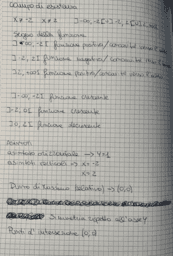 Campo di esistenza
x ≠ -2 x ≠ 2 ]-∞, -2[ ∪ ]-2, 2[ ∪ ]2, +∞[
Segno della funzione
]-∞, -2[ funzione positiva/
]-2, 2[ funzione negativa/
]2, +∞[ funzione positiva/
]-∞, -2[ funzione crescente
]-2, 0[ funzione crescente
]0, 2[ funzione decrescente
Asintoti
asintoto orizzontale → y=1
asintoti verticali → x=-2
x=2
Punto di massimo (relativo) → (0,0)
Simmetria rispetto all'asse Y
Punti d'intersezione (0,0)